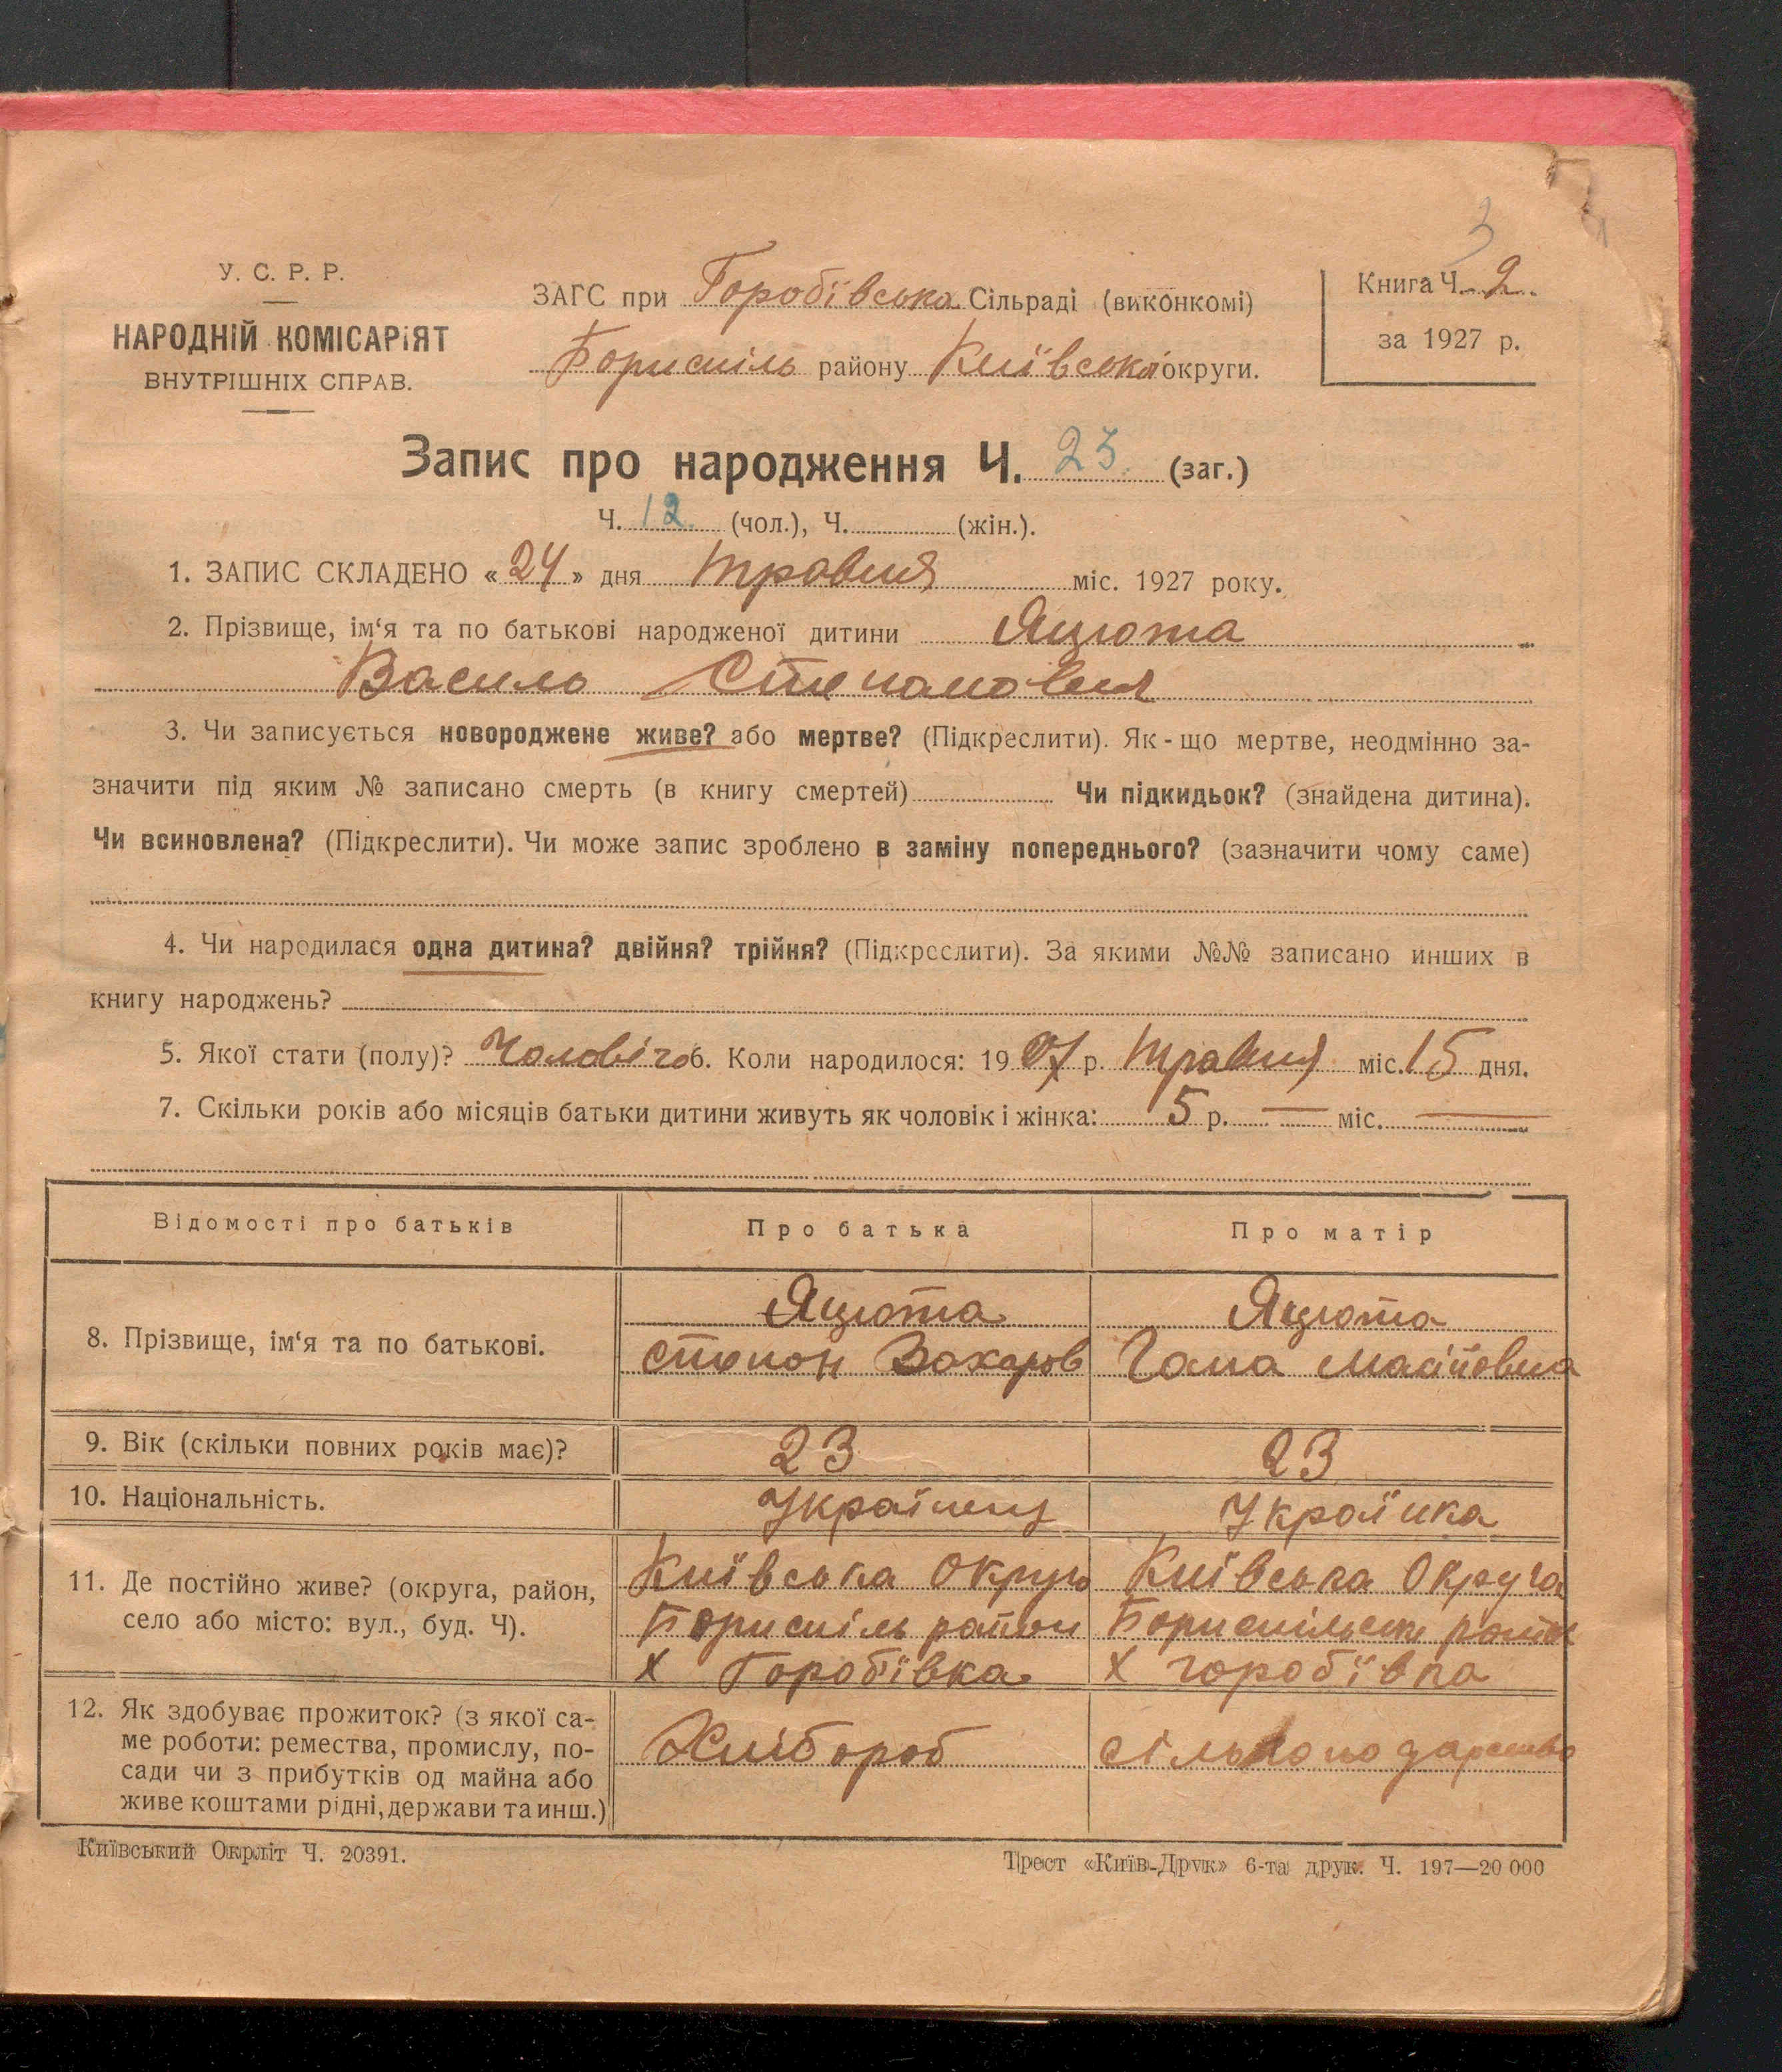 3
У. С. Р. Р.
НАРОДНІЙ КОМІСАРІЯТ
ВНУТРІШНІХ СПРАВ.
ЗАГС при Горобівська Сільраді (виконкомі)
Бориспіль району Київської округи.
Книга Ч. 2.
за 1927 р.
Запис про народження Ч. 23 (заг.)
Ч. 12. (чол.), Ч. (жін.).
1. ЗАПИС СКЛАДЕНО «24» дня травня міс. 1927 року.
2. Прізвище, ім‘я та по батькові народженої дитини Яцюта
Василь Степанович
3. Чи записується новороджене живе? або мертве? (Підкреслити). Як-що мертве, неодмінно за-
значити під яким № записано смерть (в книгу смертей) Чи підкидьок? (знайдена дитина).
Чи всиновлена? (Підкреслити). Чи може запис зроблено в заміну попереднього? (зазначити чому саме)
4. Чи народилася одна дитина? двійня? трійня? (Підкреслити). За якими №№ записано инших в
книгу народжень?
5. Якої стати (полу)? Чоловічо 6. Коли народилося: 19 27 р. травня міс. 15 дня.
7. Скільки років або місяців батьки дитини живуть як чоловік і жінка: 5 р. — міс. —
Відомості про батьків Про батька Про матір
8. Прізвище, ім‘я та по батькові.
Яцюта
Степан Захаров
Яцюта
Гана
9. Вік (скільки повних років має)? 23 23
10. Національність. Українец Українка
11. Де постійно живе? (округа, район,
село або місто: вул., буд. Ч).
Київська Округа
Бориспіль район
Х Горобівка
Київська Округа
Бориспільськ район
Х Горобівка
12. Як здобуває прожиток? (з якої са-
ме роботи: ремества, промислу, по-
сади чи з прибутків од майна або
живе коштами рідні, держави та инш.)
Хлібороб
Київський Окрліт Ч. 20391.
Трест «Київ-Друк» 6-та друк. Ч. 197—20 000